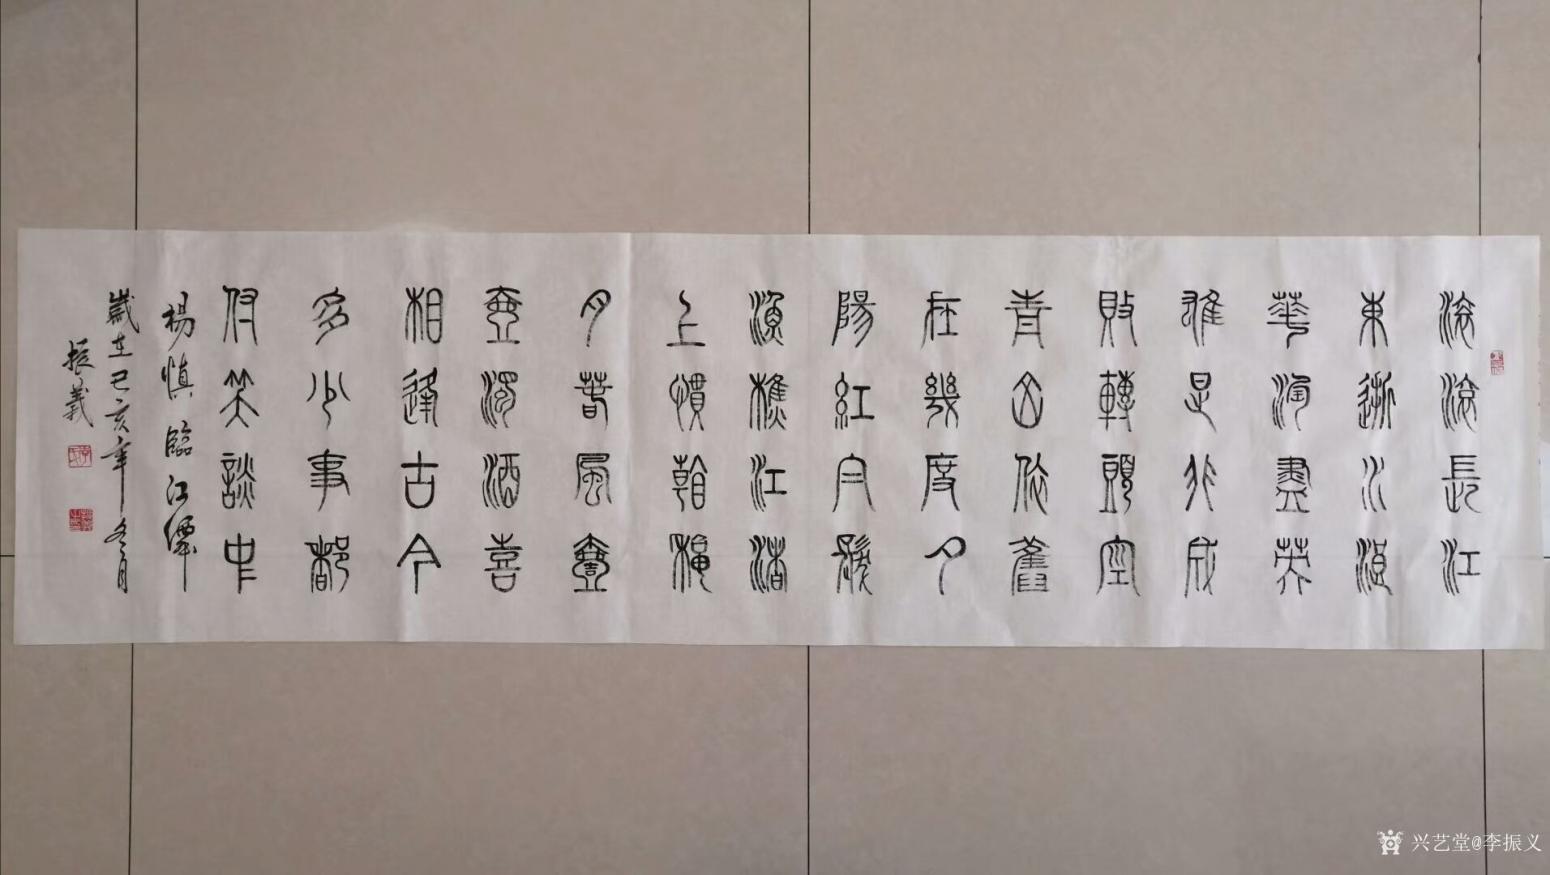 滾滾長江
東逝水浪
華淘盡英
雄是非成
敗轉頭空
青山依舊
在幾度夕
陽紅白髮
漁樵江渚
上慣看秋
月春風壹
壺濁酒喜
相逢古今
多少事都
付笑談中
楊慎臨江僊
歲在己亥年冬月
振義
兴艺堂@李振义